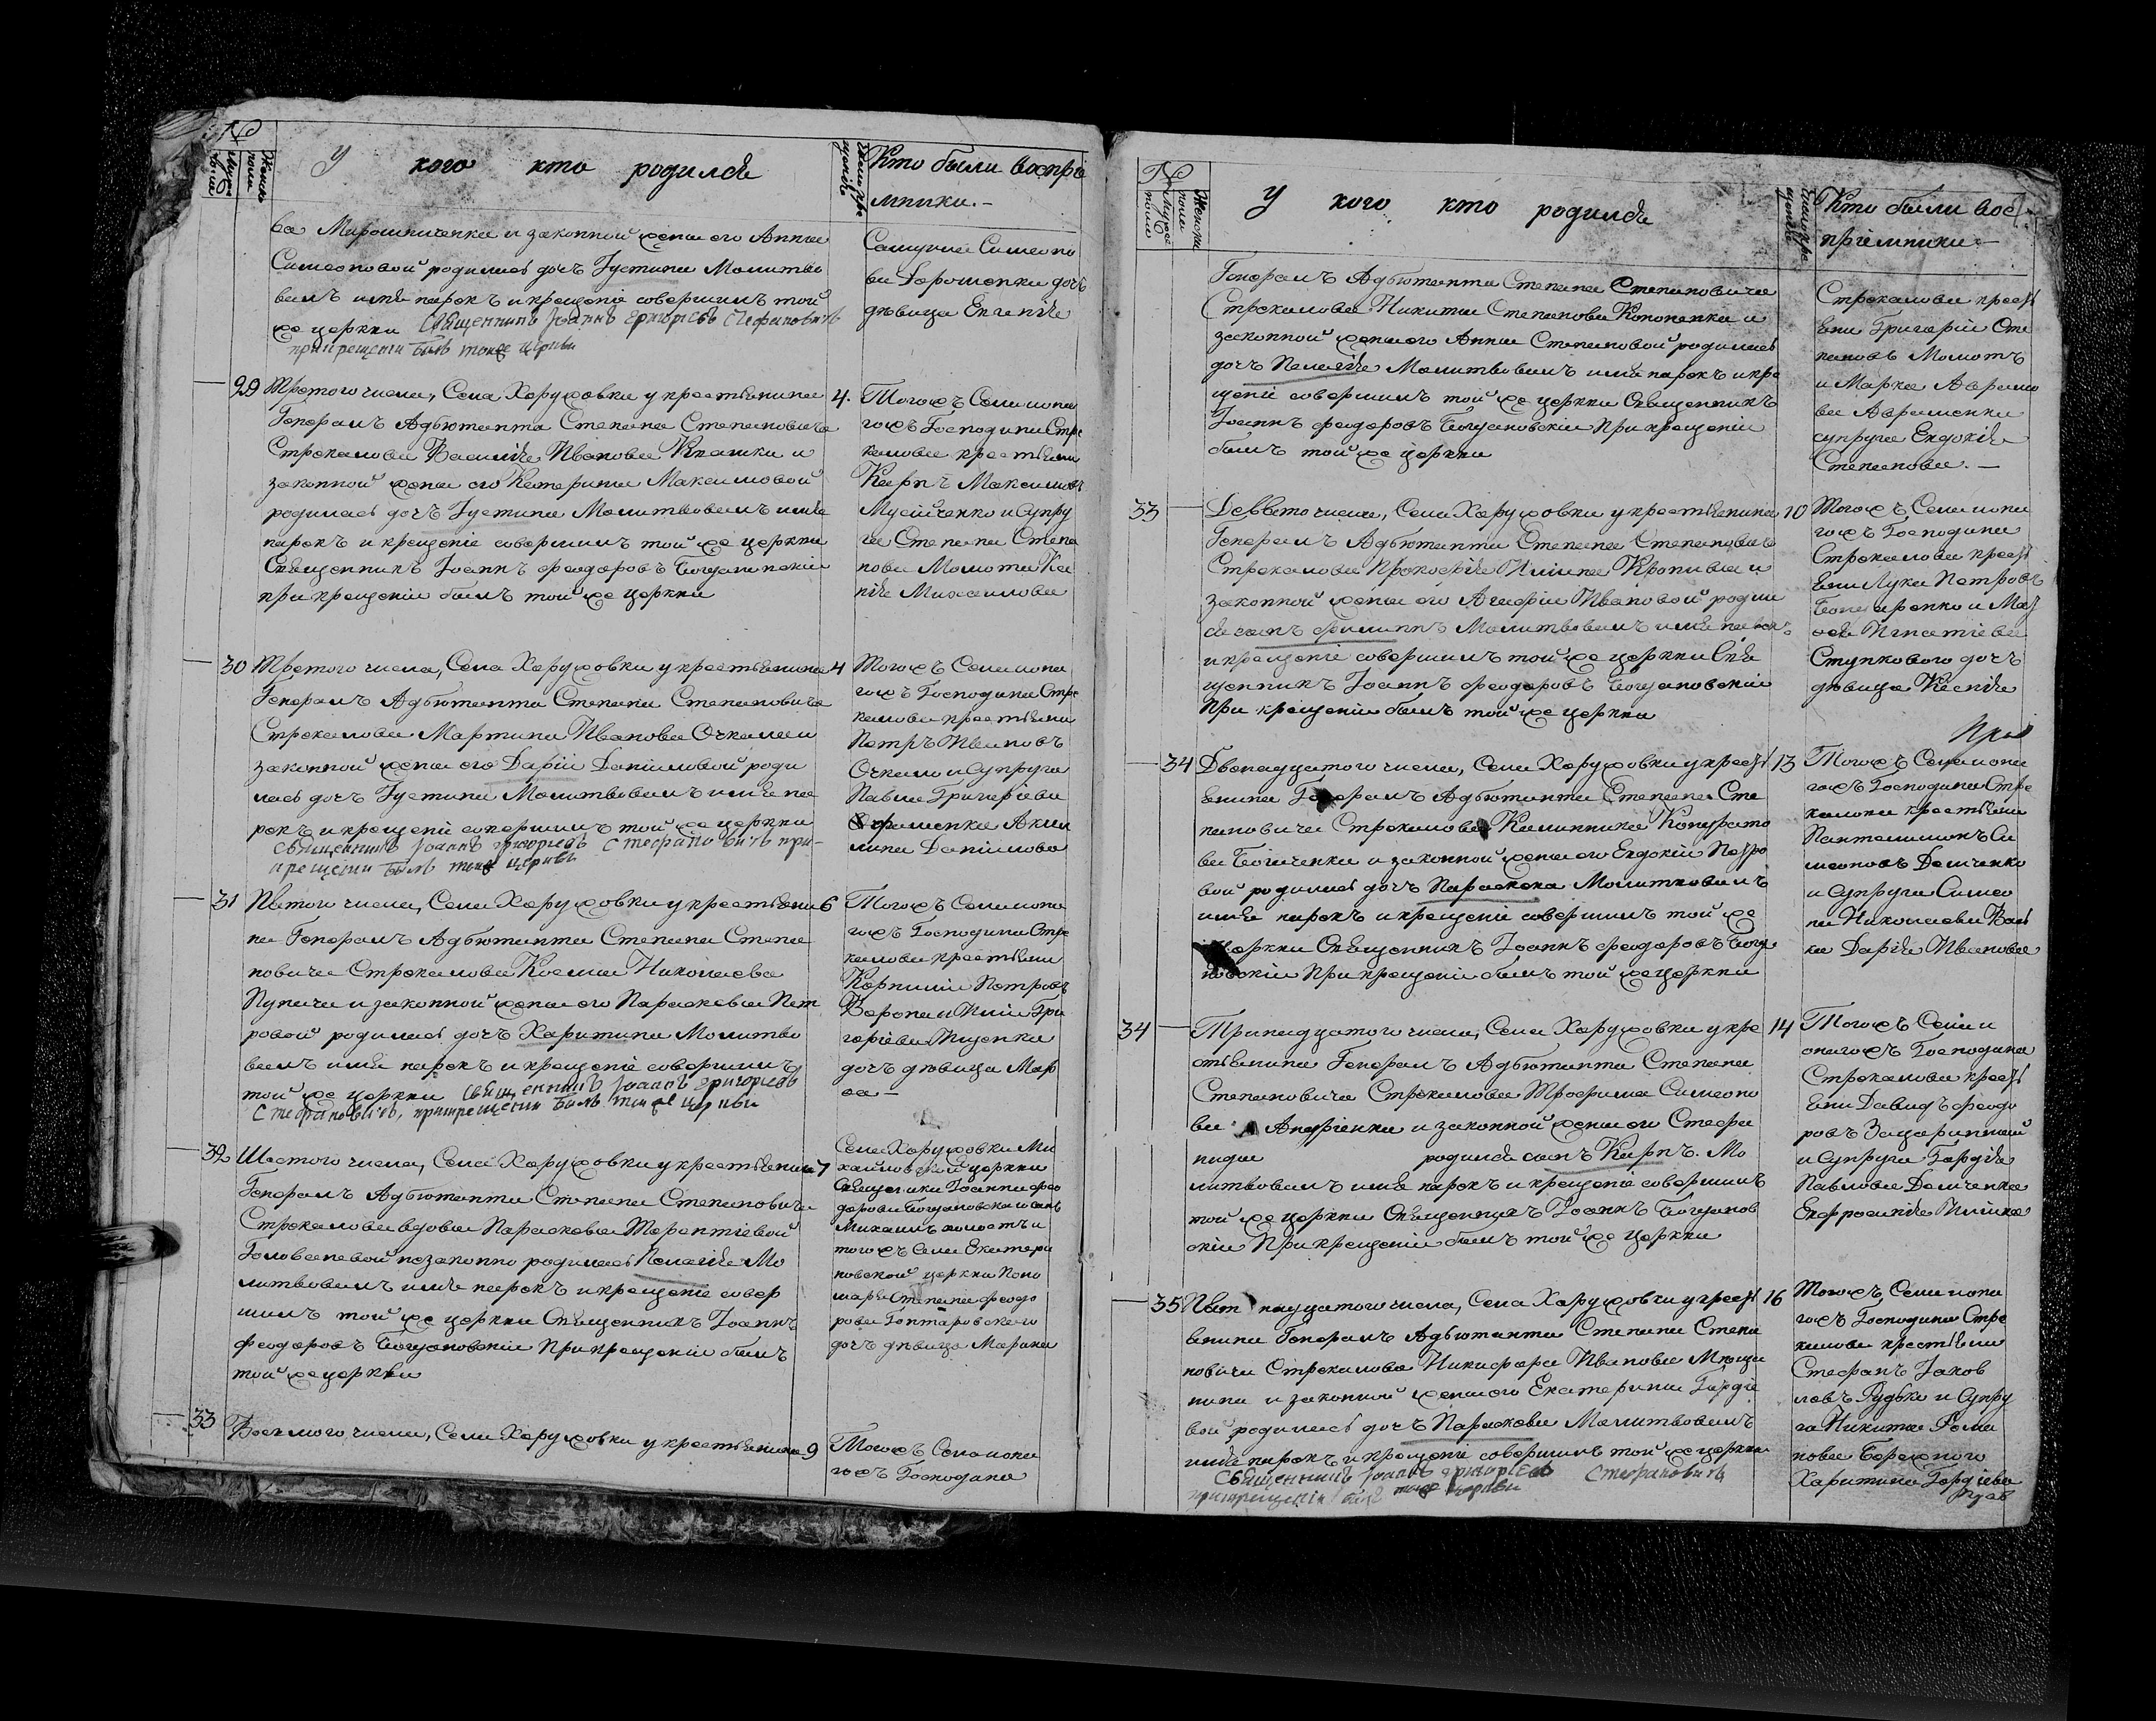 №
Мужеска пола
Женска пола
У кого кто родился
Число крещенія
Кто были воспрі
мники.-
ва Мирошниченка и законной жены его Анны
Симеоновой родилась дочь Іустина Молитво
валъ имя нарекъ и крещеніе совершилъ той
же церкви Священникъ Іоаннъ Григорьевъ Стефановичъ
при крещеніи былъ тоиже церкви
Симеоно
ва Дорошенка дочь
дѣвица Евгенія
29 Третого числа, Села Харуховки у крестьянина 4.
Генералъ Адъютанта Степана Степановича
Стрекалова Василія Иванова Квашки и
законной жены его Катерины Максимовой
родилась дочь Іустина Молитвовалъ имя
нарекъ и крещеніе совершилъ той же церкви
Священникъ Іоаннъ Феодоровъ Богдановскій
при крещеніи былъ той же церкви
Тогожъ Села и она
гожъ Господина Стре
калова крестьяни
Карпъ Максимовъ
Мусійченко и Супру
га Степана Степа
нова Момота Ксе
нія Михаилова
30 Третого числа, Села Харуховки у крестьянина 4
Генералъ Адъютанта Степана Степановича
Стрекалова Мартина Иванова Очкала и
законной жены его Дарiи Данiиловой роди
лась дочь Іустина Молитвовалъ имя на
рекъ и крещеніе совершилъ той же церкви
Священникъ Іоаннъ Григорьевъ Стефановичъ при-
крещеніи былъ тоиже церкви
Тогожъ Села и она
гожъ Господина Стре
калова крестьяни
Петръ Ивановъ
Очкало и Супруга
Павла Григоріева
Аки
лина Даніилова
31 Пятого числа, Села Харуховки у крестьяни 6
на Генералъ Адъютанта Степана Степа
новича Стрекалова Косма Николаева
Пугача и законной жены его Параскевы Пет
ровой родилась дочь Харитина Молитво
валъ имя нарекъ и крещеніе совершилъ
той же церкви Священникъ Іоаннъ Григорьевъ
Стефановичъ, при крещеніи былъ тоиже церкви
Тогожъ Села и она
гожъ Господина Стре
калова крестьяни
Корнилій Петровъ
Ворона и Иліи Гри
горіева Тищенка
дочь дѣвица Мар
фа-
32 Шестого числа, Села Харуховки у крестьянина 7
Генералъ Адъютанта Степана Степановича
Стрекалова вдовы Параскевы Терентіевой
Головачевой незаконно родилась Пелагія Мо
литвовалъ имя нарекъ и крещеніе совер
шилъ той же церкви Священникъ Іоаннъ
Феодоровъ Богдановскій При крещеніи былъ
той же церкви
Села Харуховки Ми
хайловской церкви
Священика Іоанна Фео
дорова Богдановскаго сынъ
Михаилъ холостъ и
тогожъ Села Екатери
новской церкви Поно
маря Степана Феодо
рова Гонтаровскаго
дочь дѣвица Марина
33 Восьмого числа, Села Харуховки у крестьянина 9
Тогожъ Села и она
гожъ Господина
№
Мужеска пола
Женска пола
У кого кто родился
Число крещенія
Кто были вос
пріемники.-
Генералъ Адъютанта Степана Степановича
Стрекалова Никиты Степанова Кононенка и
законной жены его Анны Степановой родилась
дочь Пелагія Молитвовалъ имя нарекъ и кре
щеніе совершилъ той же церкви Священникъ
Іоаннъ Феодоровъ Богдановскій При крещеніи
былъ той же церкви
Стрекалова кресть
яни Григорій Сте
пановъ Момотъ
и Марка Аврамо
ва Авраменка
супруга Евдокія
Степанова.-
33 Девятого числа, Села Харуховки у крестьянина 10
Генералъ Адъютанта Степана Степановича
Стрекалова Прокофія Ильина Кропивы и
законной жены его Агафіи Ивановой родил
ся сынъ Филиппъ Молитвовалъ имя нарекъ
и крещеніе совершилъ той же церкви Свя
щенникъ Іоаннъ Феодоровъ Богдановскій
При крещеніи былъ той же церкви
Тогожъ Села и она
гожъ Господина
Стрекалова кресть
яни Лука Петровъ
Бондаренко и Мат
фея Игнатіева
Ступкового дочь
дѣвица Ксенія
34 Двенадцатого числа, Села Харуховки у кресть 13
янина Генералъ Адъютанта Степана Сте
пановича Стрекалова Калинника Кондрато
ва и законной жены его Евдокіи Петро
вой родилась дочь Параскева Молитвовалъ
имя нарекъ и крещеніе совершилъ той же
церкви Священникъ Іоаннъ Феодоровъ Богда
новскій При крещеніи былъ той же церкви
Тогожъ Села и она
гожъ Господина Стре
калова крестьяни
Пантелимонъ Си
меоновъ Демченко
и Супруга Симео
на Николаева Вов
ка Дарія Иванова
34 Тринадцатого числа, Села Харуховки у кре 14
стьянина Генералъ Адъютанта Степана
Степановича Стрекалова Трофима Симеоно
ва Андріенка и законной жены его Стефа
ниды родился сынъ Карпъ. Мо
литвовалъ имя нарекъ и крещеніе совершилъ
той же церкви Священникъ Іоаннъ Богданов
скій При крещеніи былъ той же церкви
Тогожъ Села и
оногожъ Господина
Стрекалова кресть
яни Давидъ Феодо
ровъ
и Супруга Гордія
Павлова Демченка
Евфросинія
35 Пятнадцатого числа, Села Харуховки у кресть 16
янина Генералъ Адъютанта Степана Степа
новича Стрекалова Никифора Иванова
и законной жены его Екатерины Гордіе
вой родилась дочь Параскева Молитвовалъ
имя нарекъ и крещеніе совершилъ той же церкви
Священникъ Іоаннъ Григорьевъ Стефановичъ
при крещеніи былъ тоиже церкви
Тогожъ Села и она
гожъ Господина Стре
калова крестьяни
Стефанъ Іаков
левъ Гудко и Супру
га Никиты Рома
нова Бережного
Харитина Гордіева